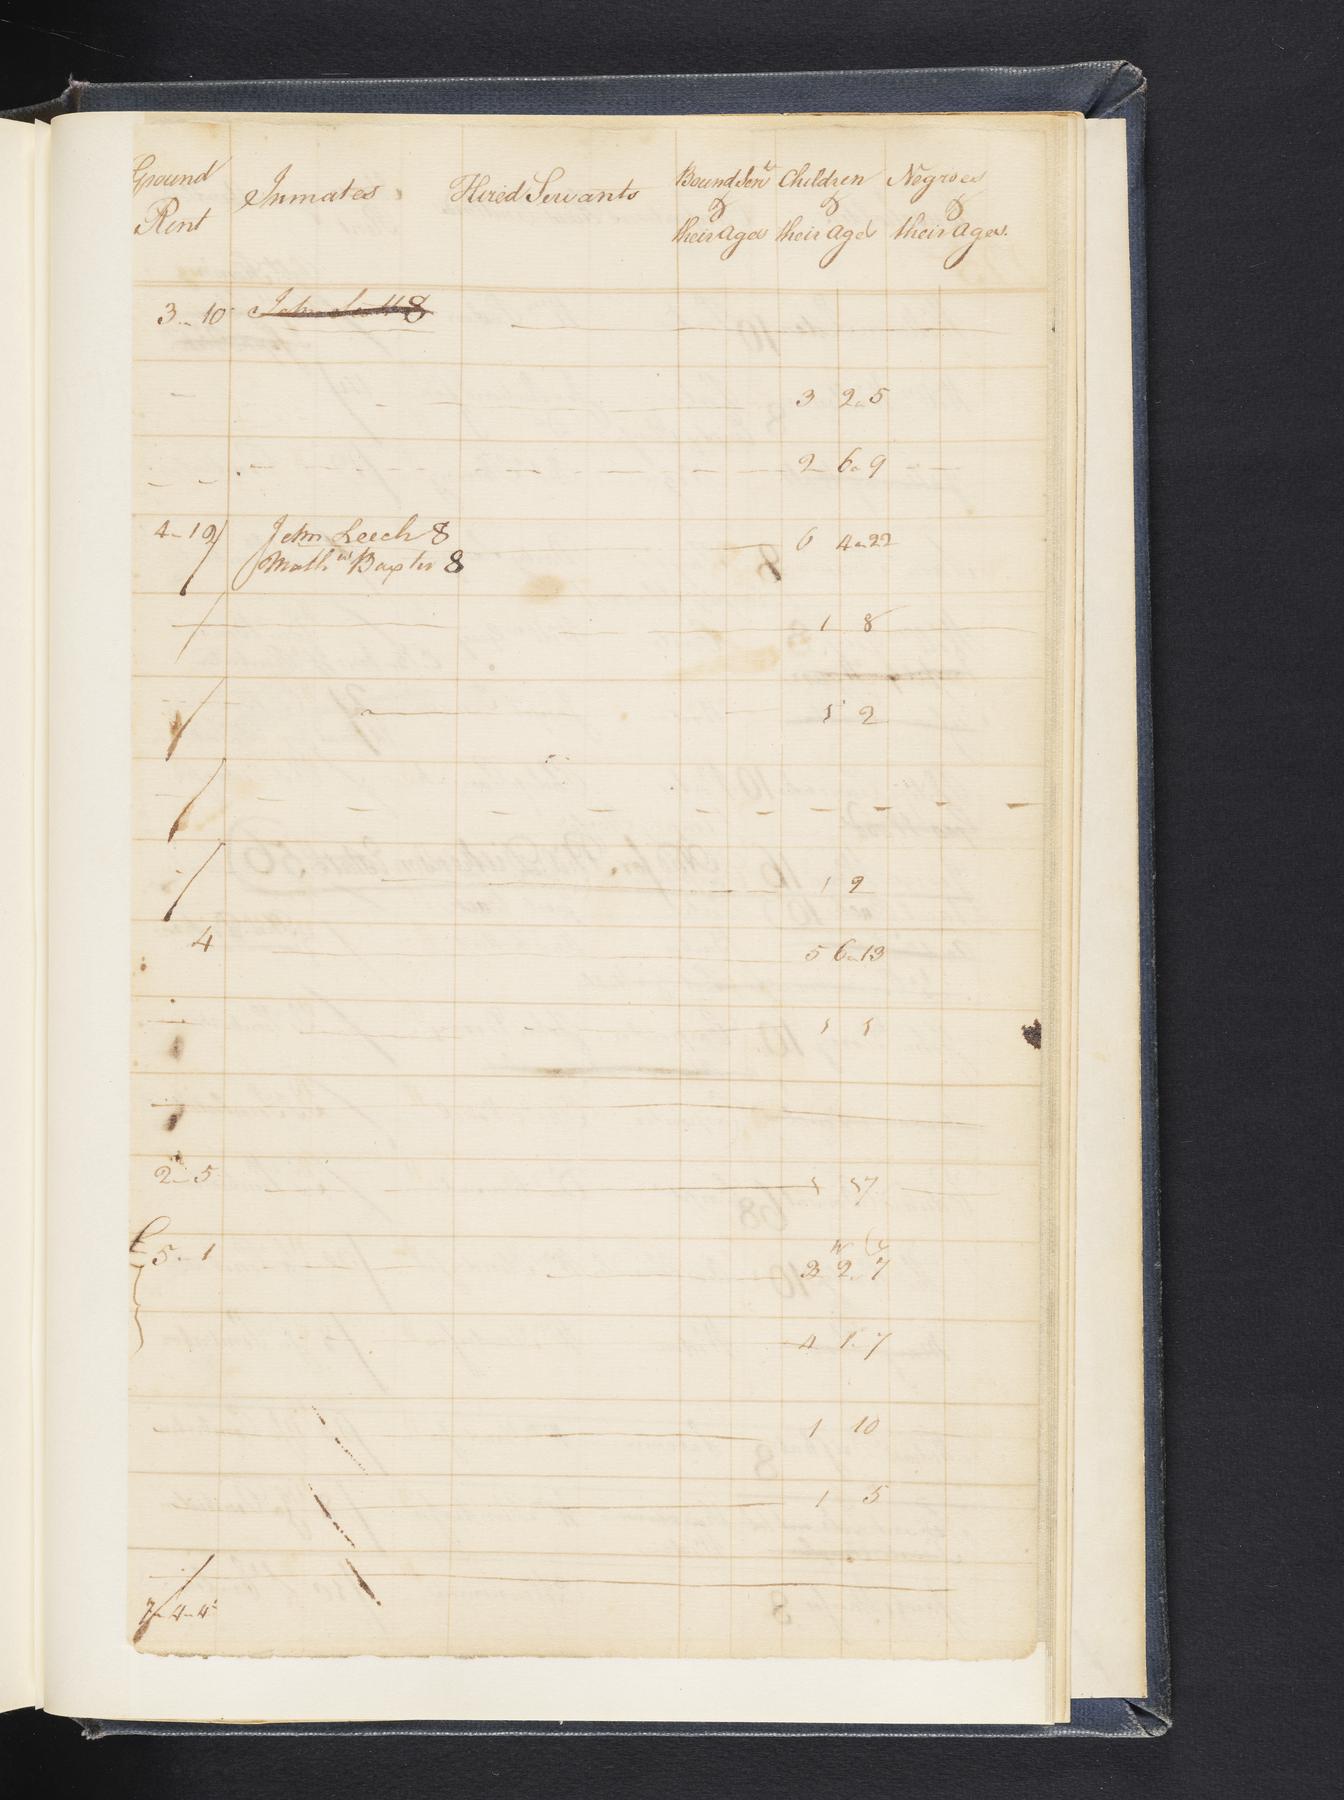 Ground Rent Inmates Hired Servants Bound Servt & their Ages Children & their Age Negroes & their Ages.
3 - 10 John Scott 8
3 2 a 5
2 6 a 9
4 - 19 John Leech 8 6 4 a 22
Mathw Baxter 8
1 8
1 2
1 9
4 5 6 a 13
1 1
2 - 5 1 17
5 - 1 3 2 7
4 1 7
1 10
1 5
7 - 4 - 4